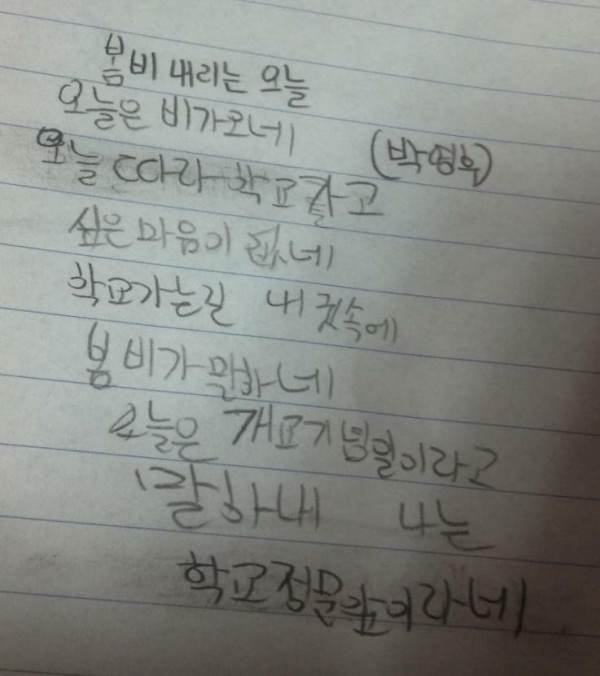 봄비 내리는 오늘
오늘은 비가오네
(박영후)
오늘따라 학교가고
싶은 마음이 없네
학교가는길 내 귓속에
봄비가 말하네
오늘은 개교기념일이라고
말하내 나는
학교정문앞이라네